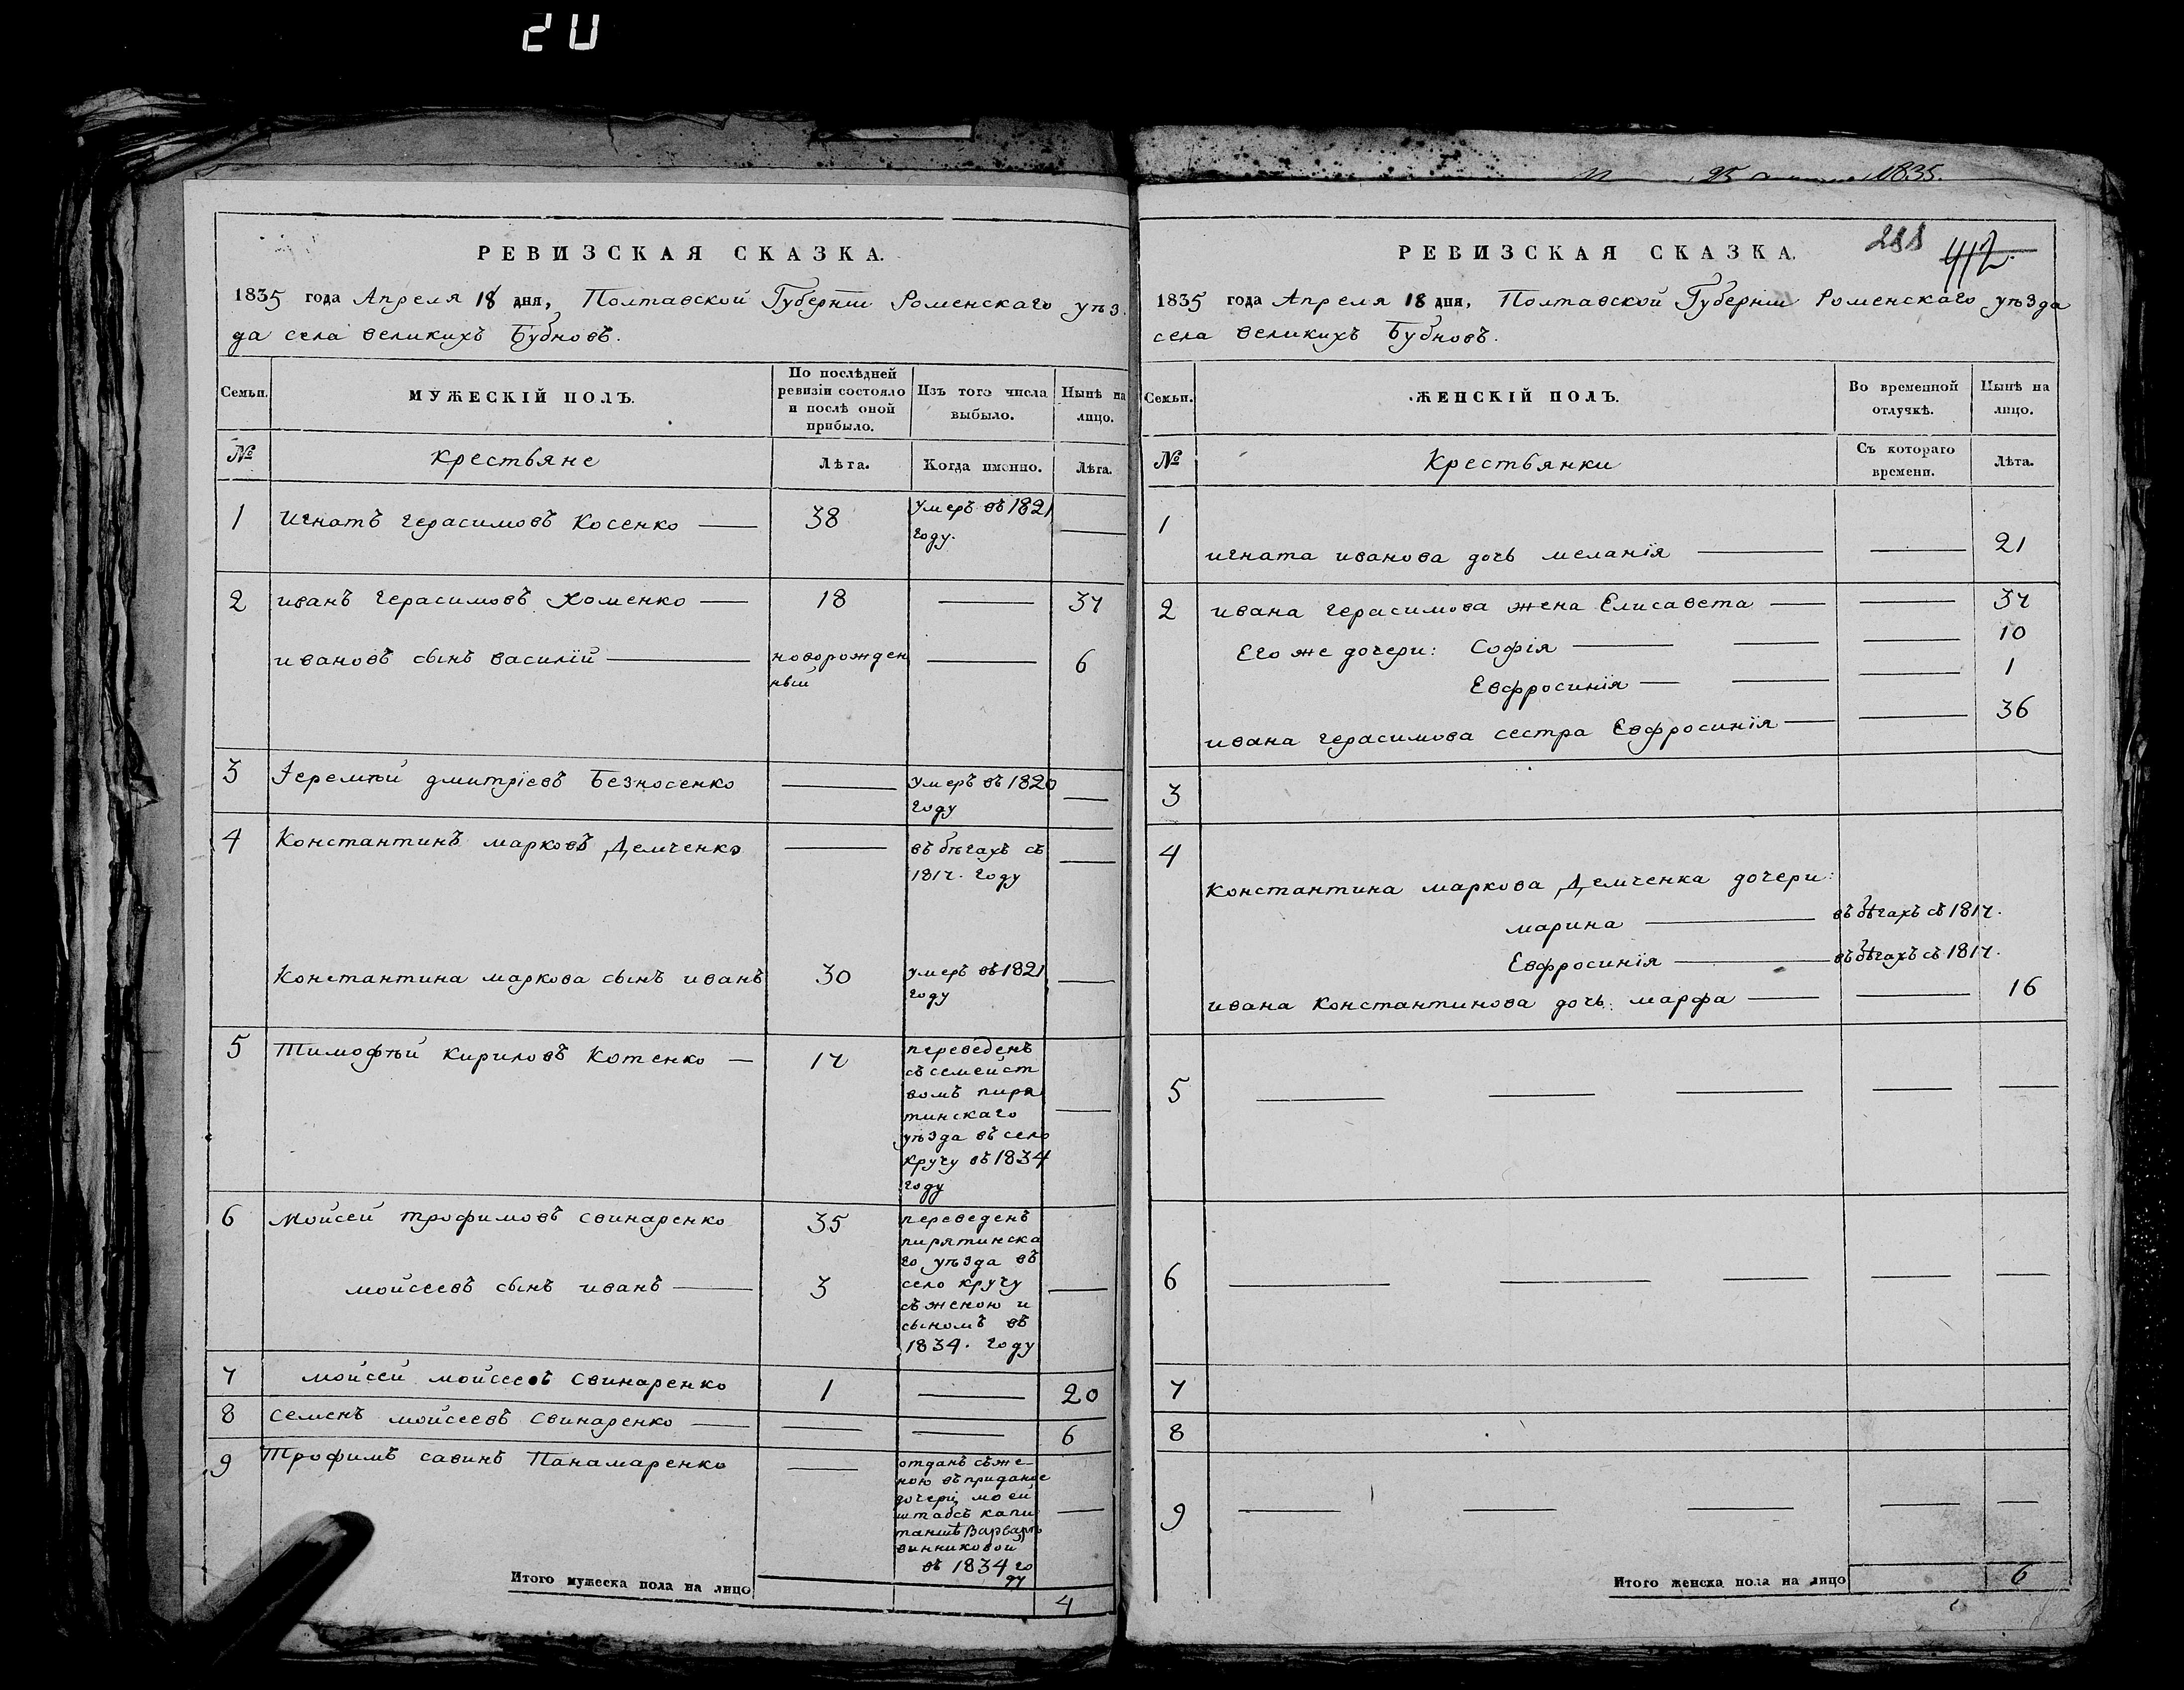 20
РЕВИЗСКАЯ СКАЗКА.
1835 года Апреля 18 дня, Полтавской Губернїи Роменскаго уѣз
да села великихъ Бубновъ.
Семьи.
МУЖЕСКІЙ ПОЛЪ.
По послѣдней ревизіи состояло и послѣ оной прибыло.
Изъ того числа выбыло.
Нынѣ на лицо.
№
крестьяне
Лѣта.
Когда именно.
Лѣта.
1 Игнатъ герасимовъ Косенко — 38 умеръ въ 1821 —
году.
2 иванъ герасимовъ Хоменко — 18 — 37
ивановъ сынъ василїй — новорожден — 6
ный
3 Іеремѣй дмитрїевъ Безносенко — умеръ въ 1820 —
году
4 Константинъ марковъ Демченко — въ бѣгахъ съ —
1817. году
Константина маркова сынъ иванъ 30 умеръ въ 1821 —
году
5 Тимофѣй кириловъ Котенко — 17 переведенъ
съ семейст
вомъ пиря
тинскаго —
уѣзда въ село
кручу въ 1834
году
6 Мойсей трофимовъ свинаренко 35 переведенъ
пирятинска
го уѣзда въ
мойсеевъ сынъ иванъ — 3 село кручу —
съ женою и
сыномъ въ
1834. году
7 мойсей мойсеевъ свинаренко 1 — 20
8 семенъ мойсеевъ свинаренко — — — 6
9 Трофимъ савинъ Панамаренко — отданъ съ же-
ною въ приданое
дочери моей
штабсъ капи —
таншѣ Варварѣ
винниковой
въ 1834 го
ду
Итого мужеска пола на лицо 4
1835.
288
412.
РЕВИЗСКАЯ СКАЗКА.
1835 года Апреля 18 дня, Полтавской Губернїи Роменскаго уѣзда
села великихъ Бубновъ.
Семьи.
ЖЕНСКІЙ ПОЛЪ.
Во временной отлучкѣ.
Нынѣ на лицо.
№
Крестьянки
Съ котораго времени.
Лѣта.
1
игната иванова дочь меланїя — — 21
2 ивана герасимова жена Елисавета — — 37
Его же дочери: Софїя — — — 10
Евфросинїя — — — 1
ивана герасимова сестра Евфросинїя — — 36
3
4
Константина маркова Демченка дочери:
марина — въ бѣгахъ съ 1817.
Евфросинїя — въ бѣгахъ съ 1817.
ивана Константинова дочь: марфа — — 16
5 — — — — —
6 — — — — —
7
8
9 — — — — —
Итого женска пола на лицо 6